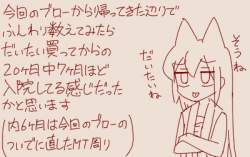 今回のブローから帰ってきた辺りで
ふんわり数えてみたら
だいたい買ってからの
20ヶ月中7ヶ月ほど
入院してる感じだった
かと思います
(内6ヶ月は今回のブローの
ついでに直したMT周り
そうね
だいたいね